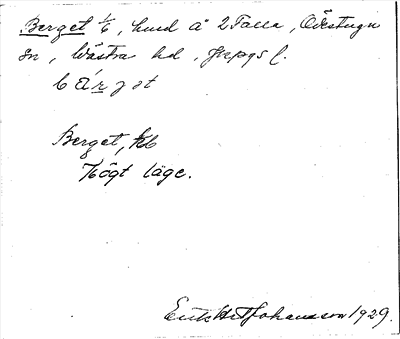 Berget 1/6, hmd å 2 Falla, Ödestugu
sn, Västra hd, Jnpgs l.
bärjet
Berget, kb
Högt läge.
Erik Hj. Johansson 1929.